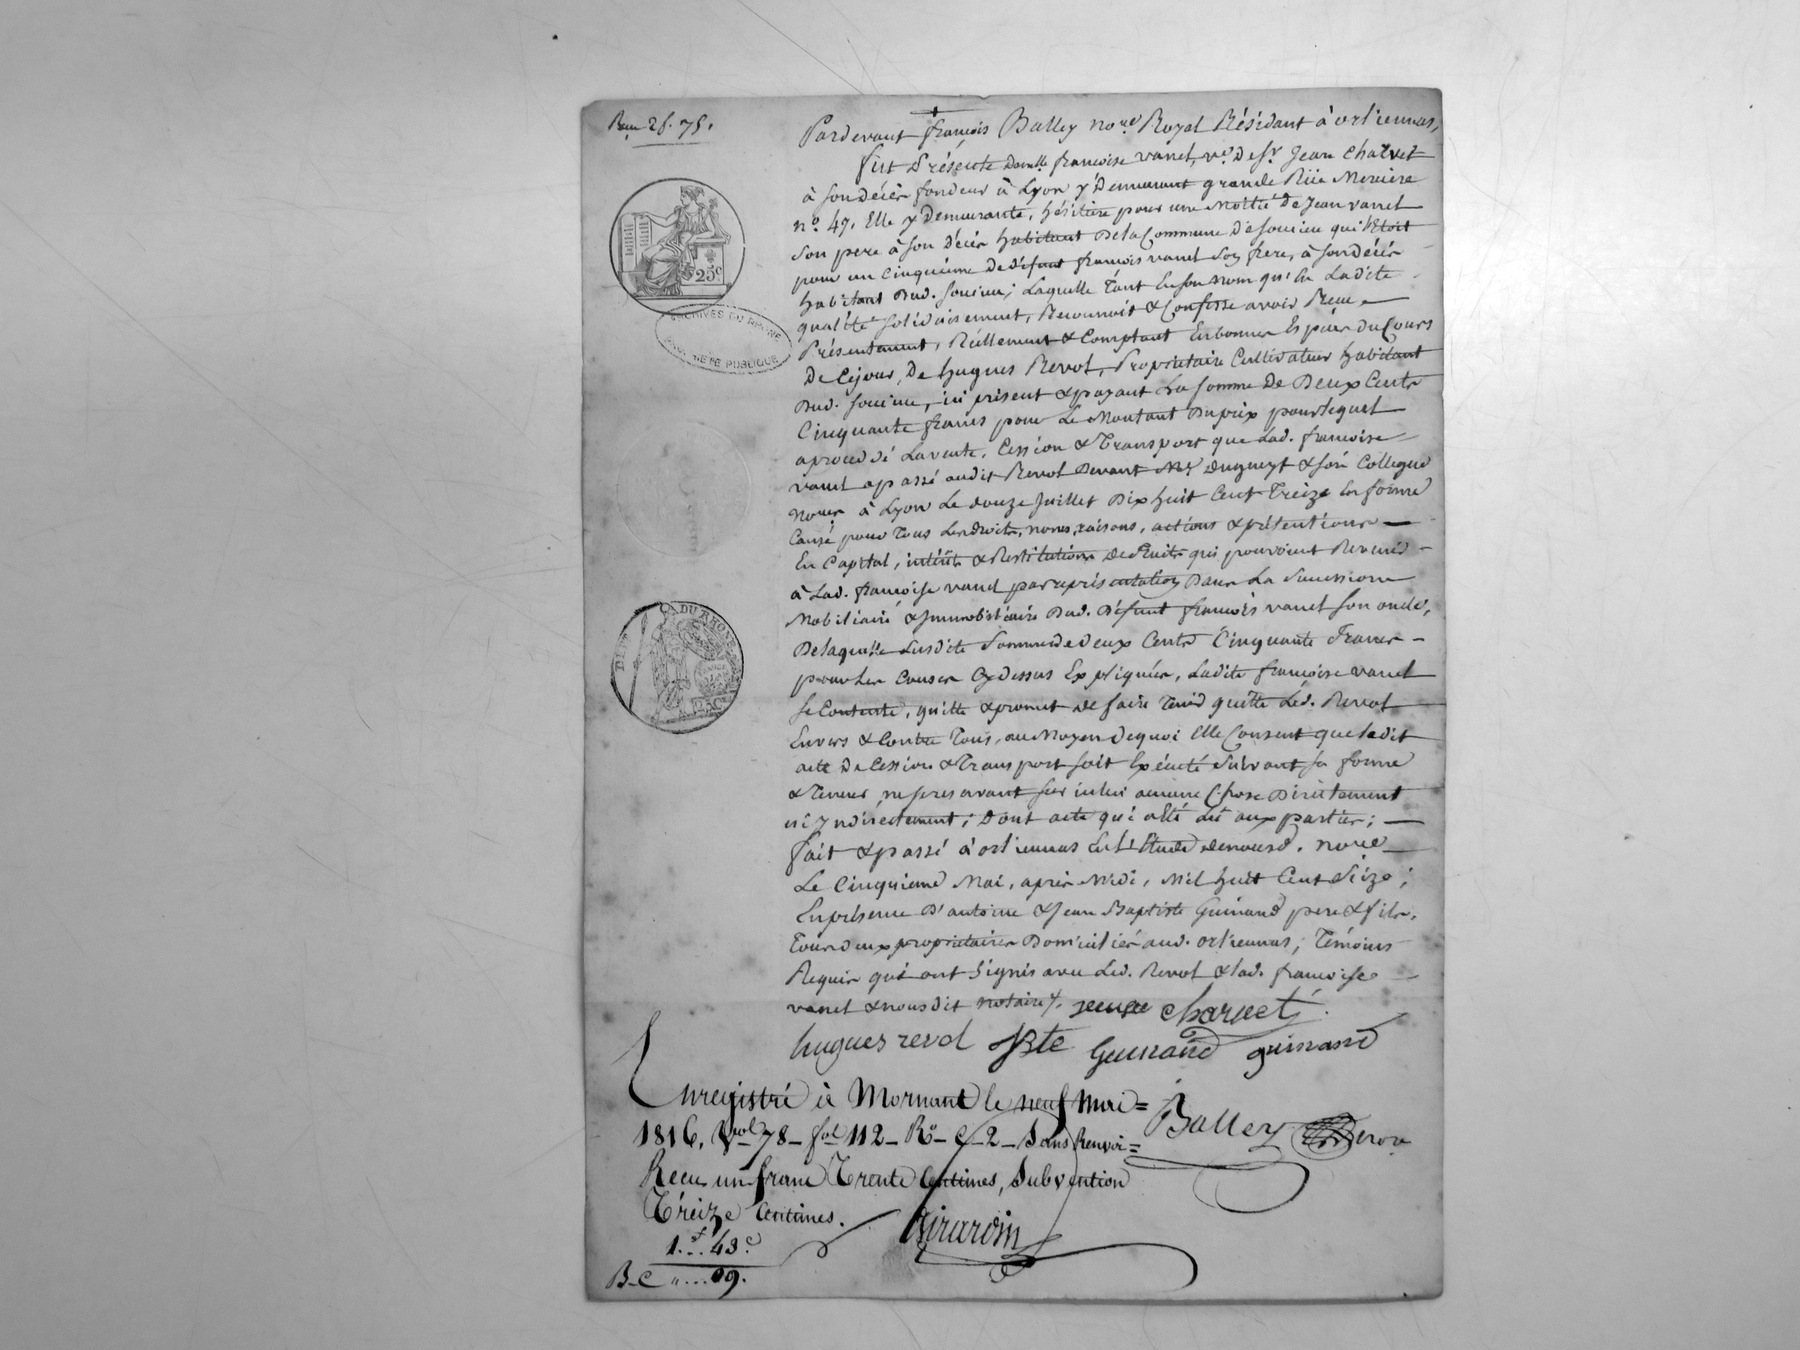 Reçu 2f. 75.
Pardevant françois Balley no.re Royal Résidant à orliennas,
fut Présente dam.lle françoise vanel, v.e de s.r Jean Charvet
à son décès fondeur à Lyon y Demeurant grande Rue Merciere
n.o 47, Elle y Demeurante, héritière pour une Moitié de Jean vanel
son pere à son Décès habitant De la Commune De soucieu qui l'Etoit
pour un Cinquième de défunt françois vanel son frere, à son décès
habitant Dud. soucieu; Laquelle tant En son nom qu'En Ladite
qualité solidairement, Reconnoit & Confesse avoir Recu
Présentement, Réellement & Comptant En bonnes Espèces du Cours
De Cejour, De hugues Revol, Propriétaire Cultivateur habitant
Dud. soucieu, ici présent & payant La somme De Deux Cents
Cinquante francs pour Le Montant Du prix pour lequel
a procédé La vente, Cession & Transport que Lad. françoise
vanel a passé audit Revol Devant M.e Dugueyt & son Collegue
no.res à Lyon Le douze Juillet Dix huit Cent Treize En forme
Causé pour Tous Les droits, noms, raisons, actions & prétentions
En Capital, intérêts & Restitution de fruits qui pouvoient Revenir
à Lad. françoise vanel par représentation Dans La Succession
Mobiliaire & Immobiliaire Dud. Défunt françois vanel son oncle,
De laquelle susdite Somme de Deux Cents Cinquante Francs
pour les Causes Cy Dessus Expliquées, Ladite françoise vanel
se Contente, quitte & promet de faire Tenir quitte Led. Revol
Envers & Contre Tous, au Moyen Dequoi Elle Consent que ledit
acte De Cession & Transport soit Exécuté Suivant sa forme
& Teneur, ne se reservant sur icelui aucune Chose Directement
ni indirectement; Dont acte qui a Eté lu aux parties;
fait & passé à orliennas En l'Etude de nousd. no.re
Le Cinquieme Mai, après Midi, Mil huit Cent Seize;
En présence D'antoine & Jean Baptiste Guinand pere & fils,
Tous deux propriétaires Domiciliés aud. orliennas, Témoins
Requis qui ont signés avec Led. Revol & lad. françoise
vanel & nousdit notaire. veuve charvet
hugues revol JBte Guinand guinand
Enregistré à Mornant le neuf Mai
1816, Vol 78 fol 112 Ro C 2 Sans Renvoi
Reçu un franc Trente Centimes, Subvention
Treize Centimes.
Balley
Girardin
1f... 43c
B.C ".... 09.
25c
ARCHIVES DU RHONE
PROPRIETE PUBLIQUE
DEPT DU RHONE
25C